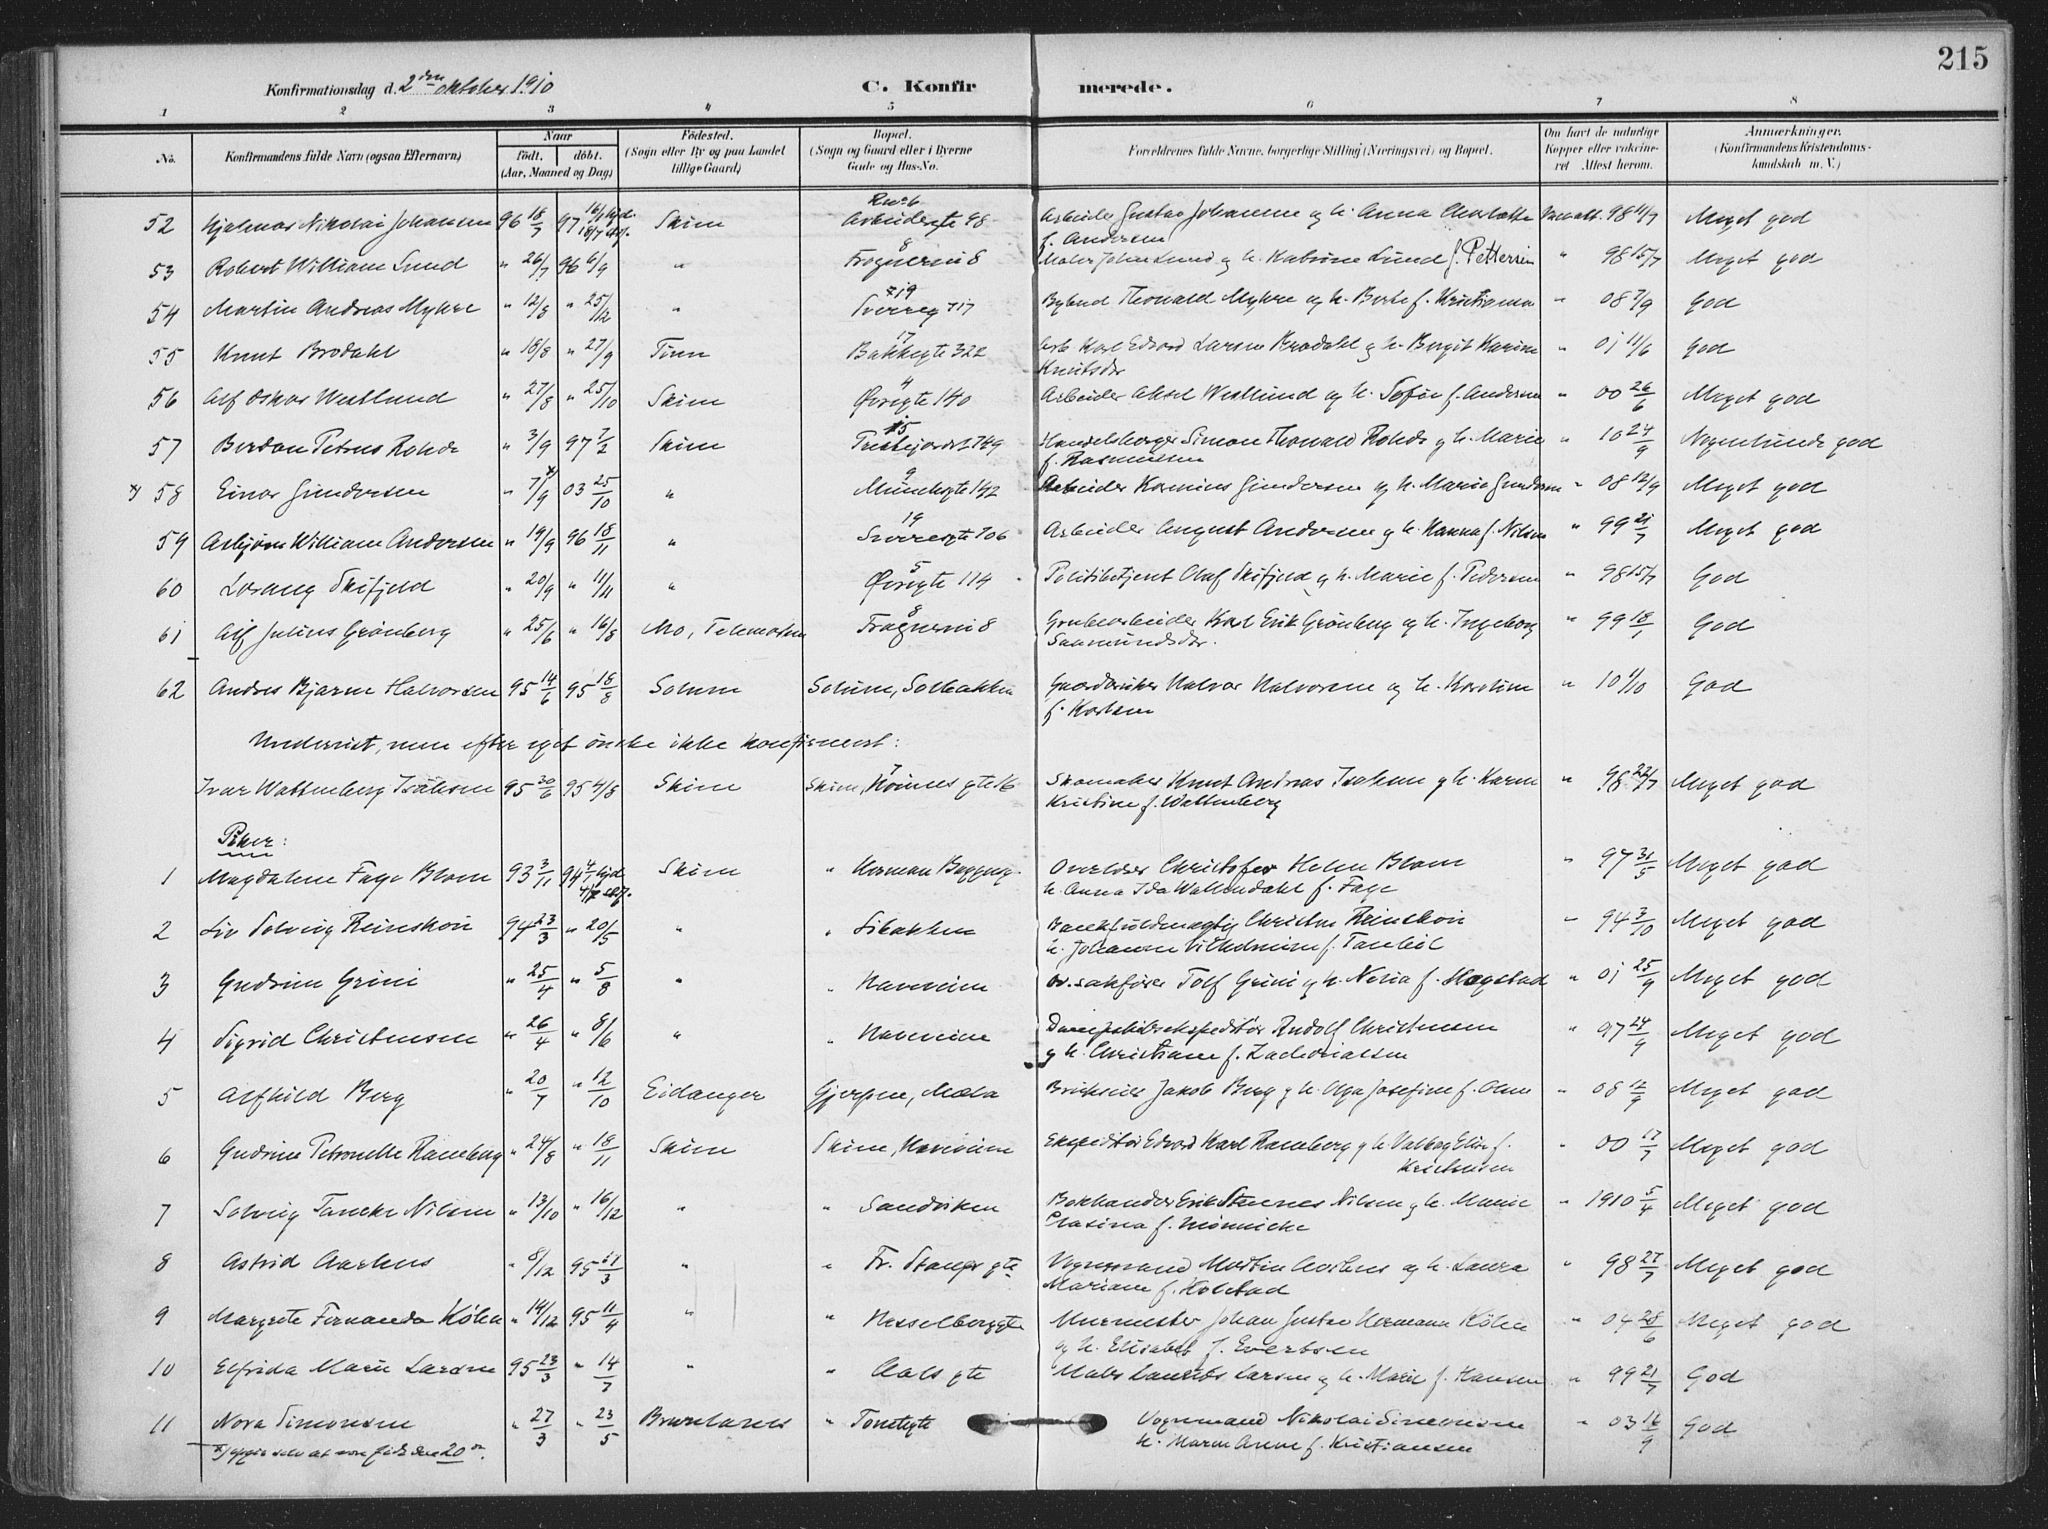 215
Konfirmationsdag d. 2den oktober 1910 C. Konfir merede.
1 2 3 4 5 6 7 8
No. Konfirmandens fulde Navn (ogsaa Efternavn) Naar födt. döbt. (Aar, Maaned og Dag) Födested. (Sogn eller By og paa Landet tillige Gaard) Bopæl. (Sogn og Gaard eller i Byerne Gade og Hus-No. Forældrenes fulde Navne, borgerlige Stilling (Næringsvei) og Bopæl. Om havt de naturlige Kopper eller vakcineret Attest herom. Anmærkninger. (Konfirmandens Kristendomskundskab m. V.)
52 Hjalmar Nikolai Johansen 96 18/7 97 16/1 hjd. 18/7 Skien Arbeidergte 98 Arbeider Gustav Johansen og h. Anna Charlotte Vac.att. 98 4/7 Meget god
f. Andersen
53 Robert William Lund " 26/7 96 6/9 " 8 Frognerni 8 Maler Johan Lund og h. Katrine Lund f. Pettersen " 98 15/7 Meget god
54 Martin Andreas Myhre " 12/8 " 25/12 " 19 Sverreg 717 Bybud Thorvald Myhre og h. Berte f. Kristiansen " 08 7/9 God
55 Knut Brodahl " 18/8 " 27/9 Tinn 17 Bakkegte 322 Arb. Karl Edvard Larsen Brodahl og h. Birgit Karine " 01 11/6 God
Knutsdr
56 Alf Oskar Westlund " 27/8 " 25/10 Skien 4 Øvregte 140 Arbeider Aksel Westlund og h. Sofie f. Andersen " 00 26/6 Meget god
57 Berdon Petrus Rohde " 3/9 97 7/2 Skien 15 749 Handelsborger Simon Thorvald Rohde og h. Marie " 10 24/9 Nogenlunde god
f. Rasmussen
x) 58 Einar Gundersen " 7/9 x 03 25/10 " 9 Münchsgte 142 Arbeider Gundersen og h. Marie Gundersen " 08 12/9 Meget god
59 Asbjørn William Andersen " 19/9 96 18/11 " 19 Sverresgte 706 Arbeider August Andersen og h. Hanna f. Nilsen " 99 21/7 Meget god
60 Lorang Skifjeld " 20/9 " 11/11 " 5 Øvregte 114 Politibetjent Olaf Skifjeld og h. Marie f. Pedersen " 98 15/7 God
61 Alf Julius Grønberg " 25/6 " 16/8 Mo, Telemarken 8 Frognerni 8 Grubearbeider Karl Erik Grønberg og h. Ingeborg " 99 18/1 God
Saamundsdr.
62 Andres Bjarne Halvorsen 95 14/6 95 18/8 Solum Solum, Solbakken Gaardbruker Halvor Halvorsen og h. Karoline " 10 1/10 God
f. Karlsen
Undervist, men efter eget ønske ikke konfirmert:
Ivar Wattenberg Isaksen 95 30/6 95 4/8 Skien Skien, 7 gte 16 Skomaker Knut Andreas Isaksen og h. Karen " 98 22/7 Meget god
Kristine f. Wattenberg
Piker:
1 Magdalene Faye Blom 93 3/11 94 4/1 hjd. Skien " Herman Baggesg. Overlærer Christofer Helen Blom " 97 31/5 Meget god
h. Anna Ida Wallendahl f. Faye
2 Liv Solveig Reinskou 94 23/3 " 20/5 " " Libakken Bankfuldmægtig Christen Reinskou " 94 3/10 Meget god
h. Johanne Vilhelmine f.
3 Gudrun Grini " 25/4 " 5/8 " " Haveveien Ov.sakfører Tolf Grini og h. f. Hagstad " 01 25/9 Meget god
4 Sigrid Christensen " 26/4 " 8/6 " " Haveveien Dampskibsekspeditør Rudolf Christensen " 97 24/9 Meget god
og h. Christiane f. Zachariassen
5 Alfhild Berg " 20/7 " 12/10 Eidanger Gjerpen, Mæla Jakob Berg og h. Olga Josefine f. Olsen " 08 12/9 Meget god
6 Gudrun Petronelle Ramberg " 24/8 " 18/11 Skien Skien, Haveveien Ekspeditør Edvard Karl Ramberg og h. Valborg Elise f. " 00 17/7 Meget god
Kristensen
7 Solveig Tancke Nilsen " 13/10 " 16/12 " " Sandviken Bokhandler Erik Steenes Nilsen og h. Marie " 1910 5/4 Meget god
Clasina f. Mønniche
8 Astrid Aarhus " 8/12 95 17/3 " " Fr. Stangs gte Vognmand Martin Aarhus og h. Laura " 98 27/7 Meget god
Mariane f. Holstad
9 Margrete Fernanda Kølen " 14/12 95 11/4 " " Hesselberggte Murmester Johan Gustav Hermann Kølen " 04 28/6 Meget god
og h. Elisabet f. Evertsen
10 Elfrida Marie Larsen 95 23/3 " 14/7 " " Aalsgte Maler Laurits Larsen og h. Marie f. Hansen " 99 21/7 God
11 Nora Simonsen " 27/3 " 23/5 Brunlanes " Vognmand Nikolai Simonsen " 03 16/9 God
x) opgir selv at være født den 20de. h. Maren Anne f. Kristiansen